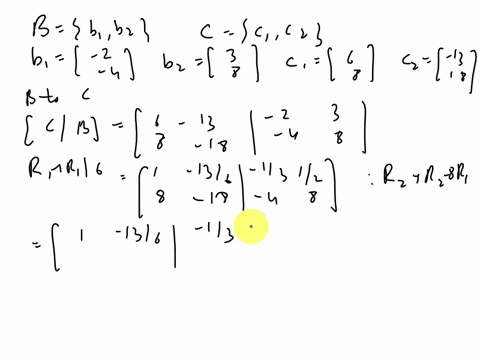 B = {b1, b2} C = {c1, c2}
b1 = [-2 -4] b2 = [3 8] c1 = [6 8] c2 = [-13 18]
B to C
[C/B] = [6 -13 | -2 3
8 -18 | -4 8]
R1→R1/6 = [1 -13/6 | -1/3 1/2
8 -18 | -4 8] : R2→R2-8R1
= [1 -13/6 | -1/3